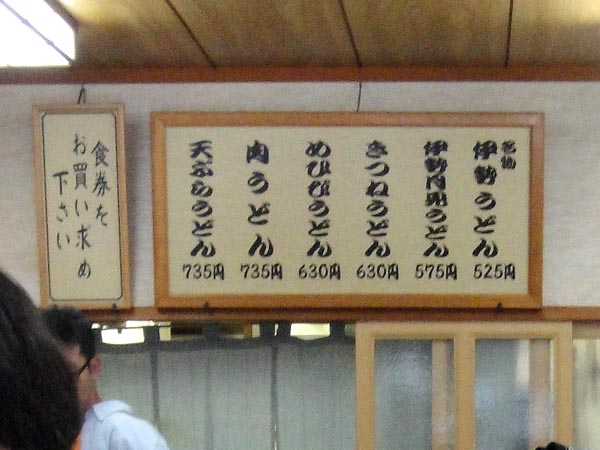 名物
伊勢うどん
525円
伊勢月見うどん
575円
きつねうどん
630円
めひびうどん
630円
肉うどん
735円
天ぷらうどん
735円
食券を
お買い求め
下さい